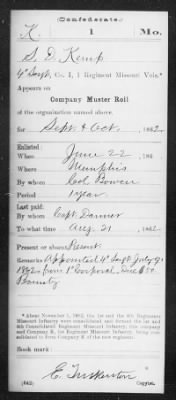 (Confederate.)
K. 1 Mo.
S. D. Kemp
4" Sergt, Co. I, 1 Regiment Missouri Vols.*
Appears on
Company Muster Roll
of the organization named above,
for Sept & Oct, 1862.
Enlisted:
When June 22, 186
Where Memphis
By whom Col Bowen
Period 1 year
Last paid:
By whom Capt
To what time Aug 31, 1862.
Present or absent Present
Remarks: Appointed 4" Sergt July 9"
1862 from 1" Corporal, Due $50
Bounty
*About November 1, 1862, the 1st and 4th Regiments
Missouri Infantry were consolidated and formed the 1st and
4th Consolidated Regiment Missouri Infantry, this company
and Company K, 1st Regiment Missouri Infantry, being consolidated to
form Company E of the new regiment.
Book mark:
E.
(642) Copyist.